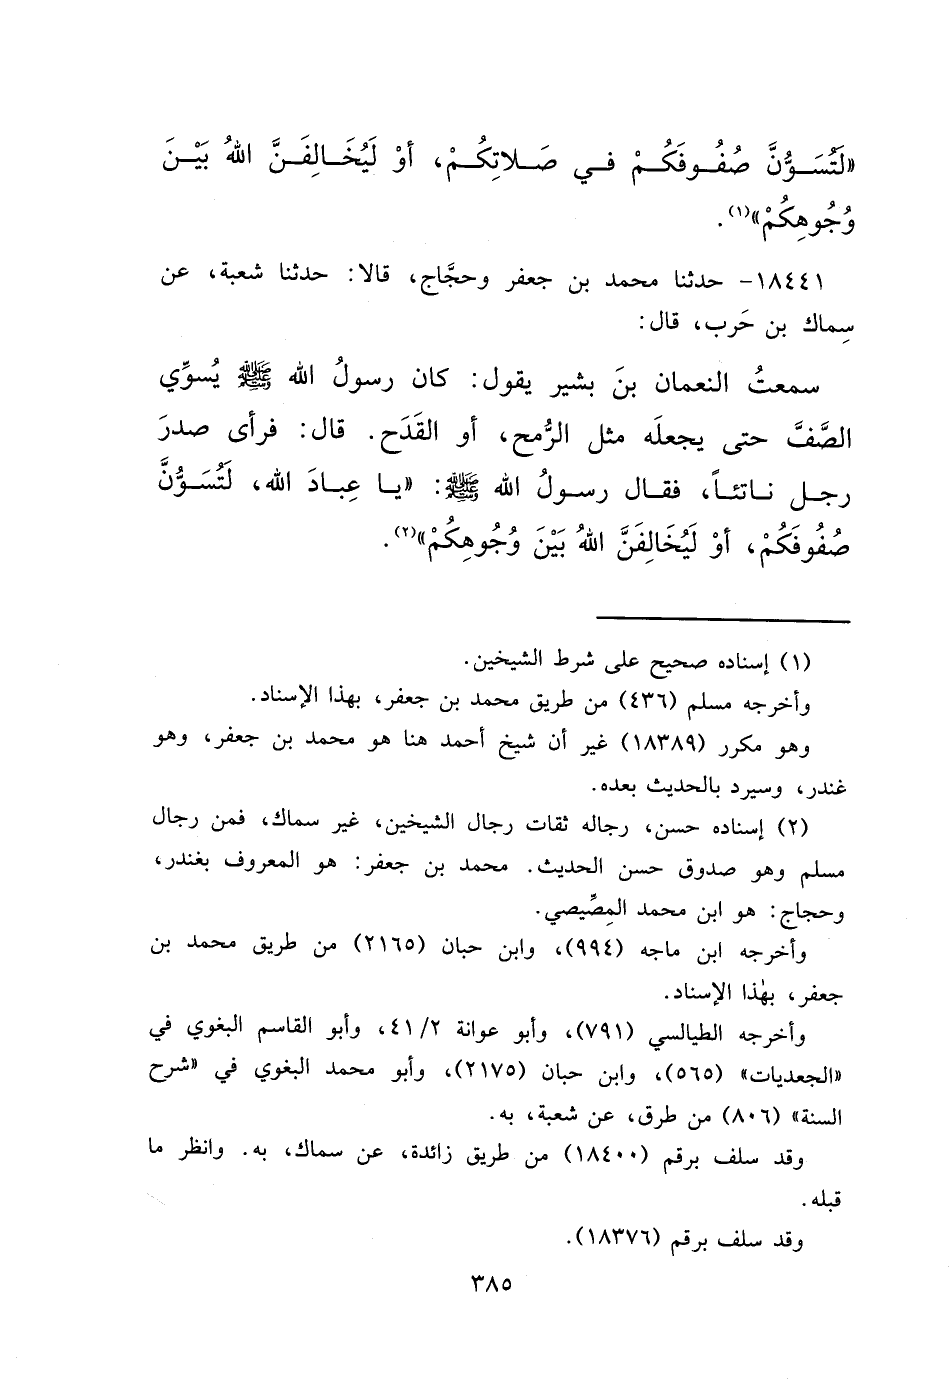 «لَتُسَـوُّنَّ صُفُـوفَكُـمْ فـي صَـلاتِكُـمْ، أوْ لَيُخَـالِفَـنَّ اللهُ بَيْـنَ
وُجُوهِكُمْ»(١).
١٨٤٤١- حدثنا محمد بن جعفر وحجَّاج، قالا: حدثنا شعبة، عن
سِماك بن حَرب، قال:
سمعتُ النعمان بنَ بشير يقول: كان رسولُ الله ﷺ يُسوِّي
الصَّفَّ حتى يجعلَه مثل الرُّمح، أو القَدَح. قال: فرأى صدرَ
رجـل نـاتئـاً، فقـال رسـولُ الله ﷺ: «يـا عِبـادَ الله، لَتُسَـوُّنَّ
صُفُوفَكُمْ، أوْ لَيُخَالِفَنَّ اللهُ بَيْنَ وُجُوهِكُمْ»(٢).
(١) إسناده صحيح على شرط الشيخين.
وأخرجه مسلم (٤٣٦) من طريق محمد بن جعفر، بهذا الإسناد.
وهو مكرر (١٨٣٨٩) غير أن شيخ أحمد هنا هو محمد بن جعفر، وهو
غندر، وسيرد بالحديث بعده.
(٢) إسناده حسن، رجاله ثقات رجال الشيخين، غير سماك، فمن رجال
مسلم وهو صدوق حسن الحديث. محمد بن جعفر: هو المعروف بغندر،
وحجاج: هو ابن محمد المِصِّيصي.
وأخرجه ابن ماجه (٩٩٤)، وابن حبان (٢١٦٥) من طريق محمد بن
جعفر، بهٰذا الإسناد.
وأخرجه الطيالسي (٧٩١)، وأبو عوانة ٤١/٢، وأبو القاسم البغوي في
«الجعديات» (٥٦٥)، وابن حبان (٢١٧٥)، وأبو محمد البغوي في «شرح
السنة» (٨٠٦) من طرق، عن شعبة، به.
وقد سلف برقم (١٨٤٠٠) من طريق زائدة، عن سماك، به. وانظر ما
قبله.
وقد سلف برقم (١٨٣٧٦).
٣٨٥